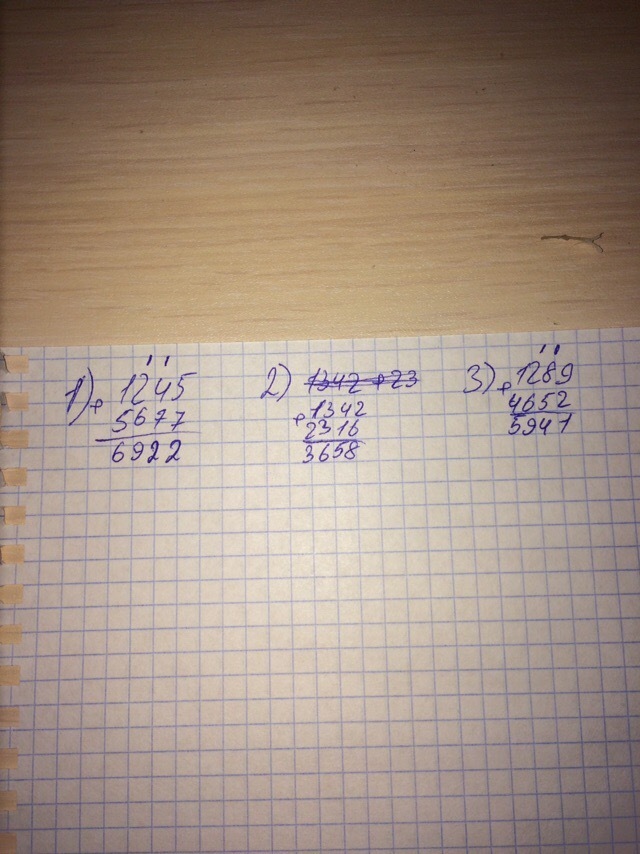 1) + 1245
5677
6922
2) 1342 + 23
+ 1342
2316
3658
3) + 1289
4652
5941